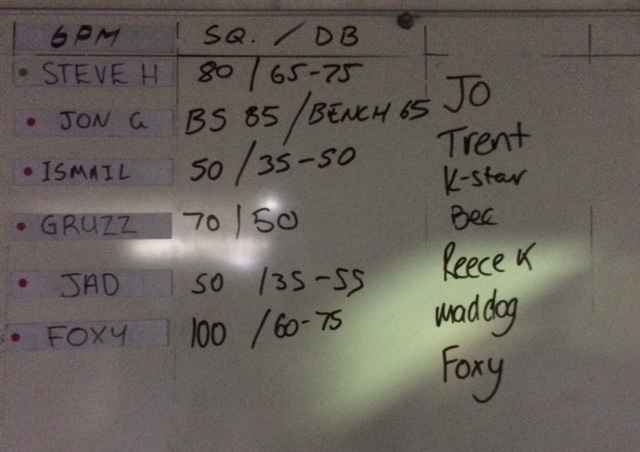 6PM SQ. / DB
STEVE H 80 / 65-75
JON G BS 85 / BENCH 65
ISMAIL 50 / 35-50
GRUZZ 70 / 50
JAD 50 / 35-55
FOXY 100 / 60-75
JO
Trent
K-star
Bec
Reece K
maddog
Foxy